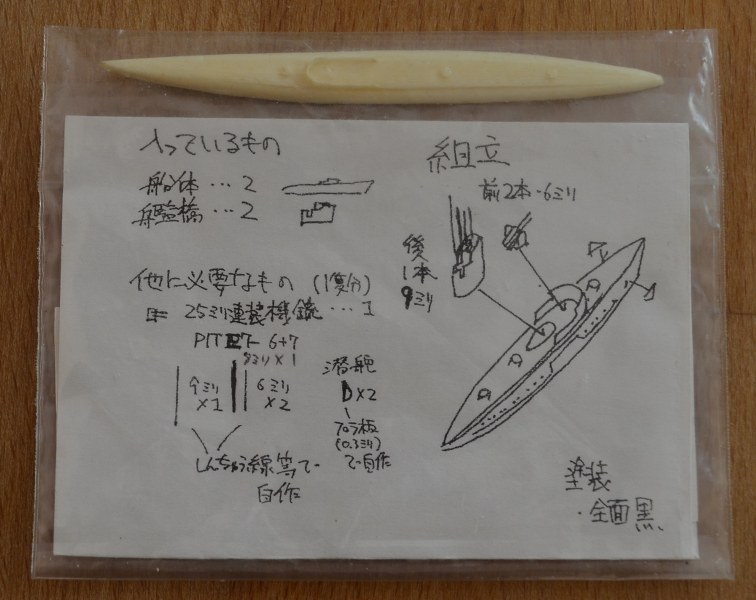 入っているもの
船体…2
艦橋…2
他に必要なもの（1隻分）
25ミリ連装機銃…1
PIT 6+7
8ミリ×1
9ミリ
×1
6ミリ
×2
しんちゅう線等で
自作
潜舵
×2
プラ板
(0.3ミリ)
で自作
組立
前2本-6ミリ
後
1本
9ミリ
塗装
・全面黒